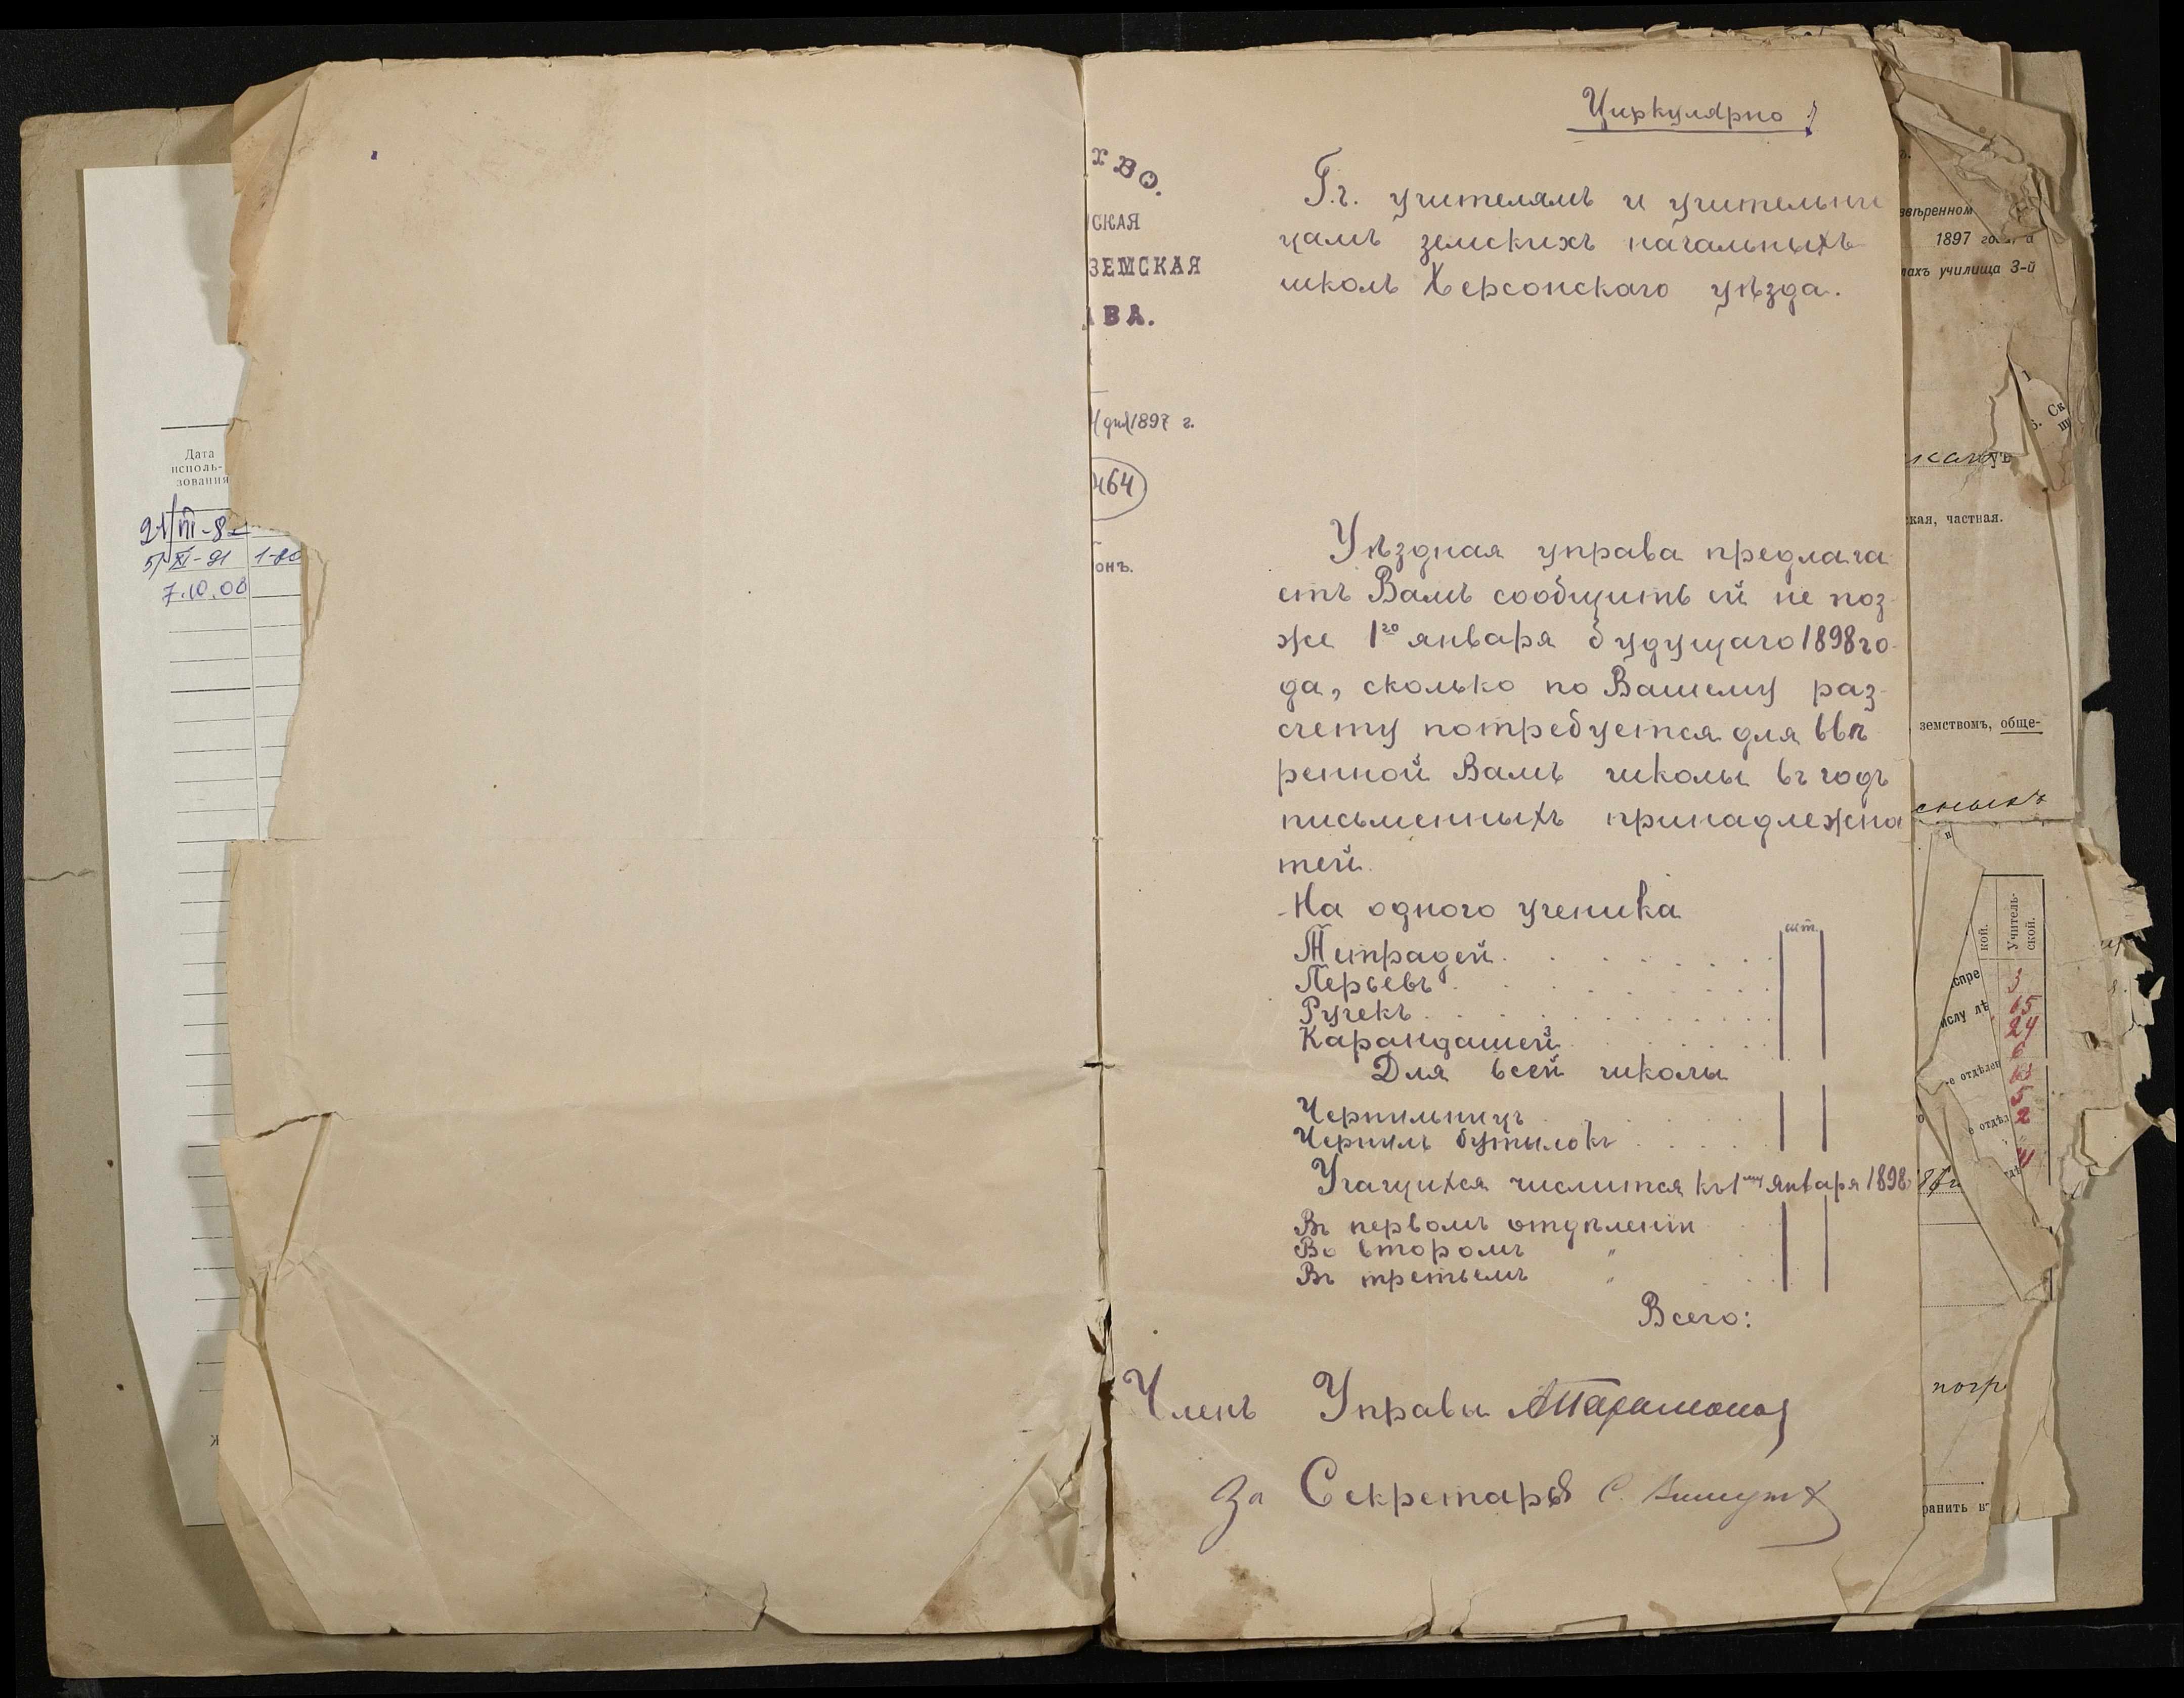 Дата
исполь-
зования
21/III-8
5/XI-91 1-80
7.10.08
тво.
СКАЯ
ЗЕМСКАЯ
АВА.
1897 г.
464
онъ.
Циркулярно
Г.г. учителямъ и учительни
цамъ земскихъ начальныхъ
школъ Херсонскаго уѣзда.
Уѣздная управа предлага-
етъ Вамъ сообщить ей не поз-
же 1го января будущаго 1898 го-
да, сколько по Вашему раз-
счету потребуется для ввѣ-
ренной Вамъ школы въ годъ
письменныхъ принадлежно
тей.
На одного ученика
шт.
Тетрадей
Перьевъ
Ручекъ
Карандашей
Для всей школы
Чернильницъ
Чернилъ бутылокъ
Учащихся числится къ 1му января 1898
Въ первомъ отдѣленіи
Во второмъ "
Въ третьемъ "
Всего:
Членъ Управы
За Секретаря С.
ввѣренном
1897 года, и
лахъ училища 3-й
ская, частная.
земствомъ, обще-
кой.
Учитель-
ской.
спре 3
ислу лѣ 65
24
6
е отдѣлен
5
е отдѣл 2
погр
ранить въ